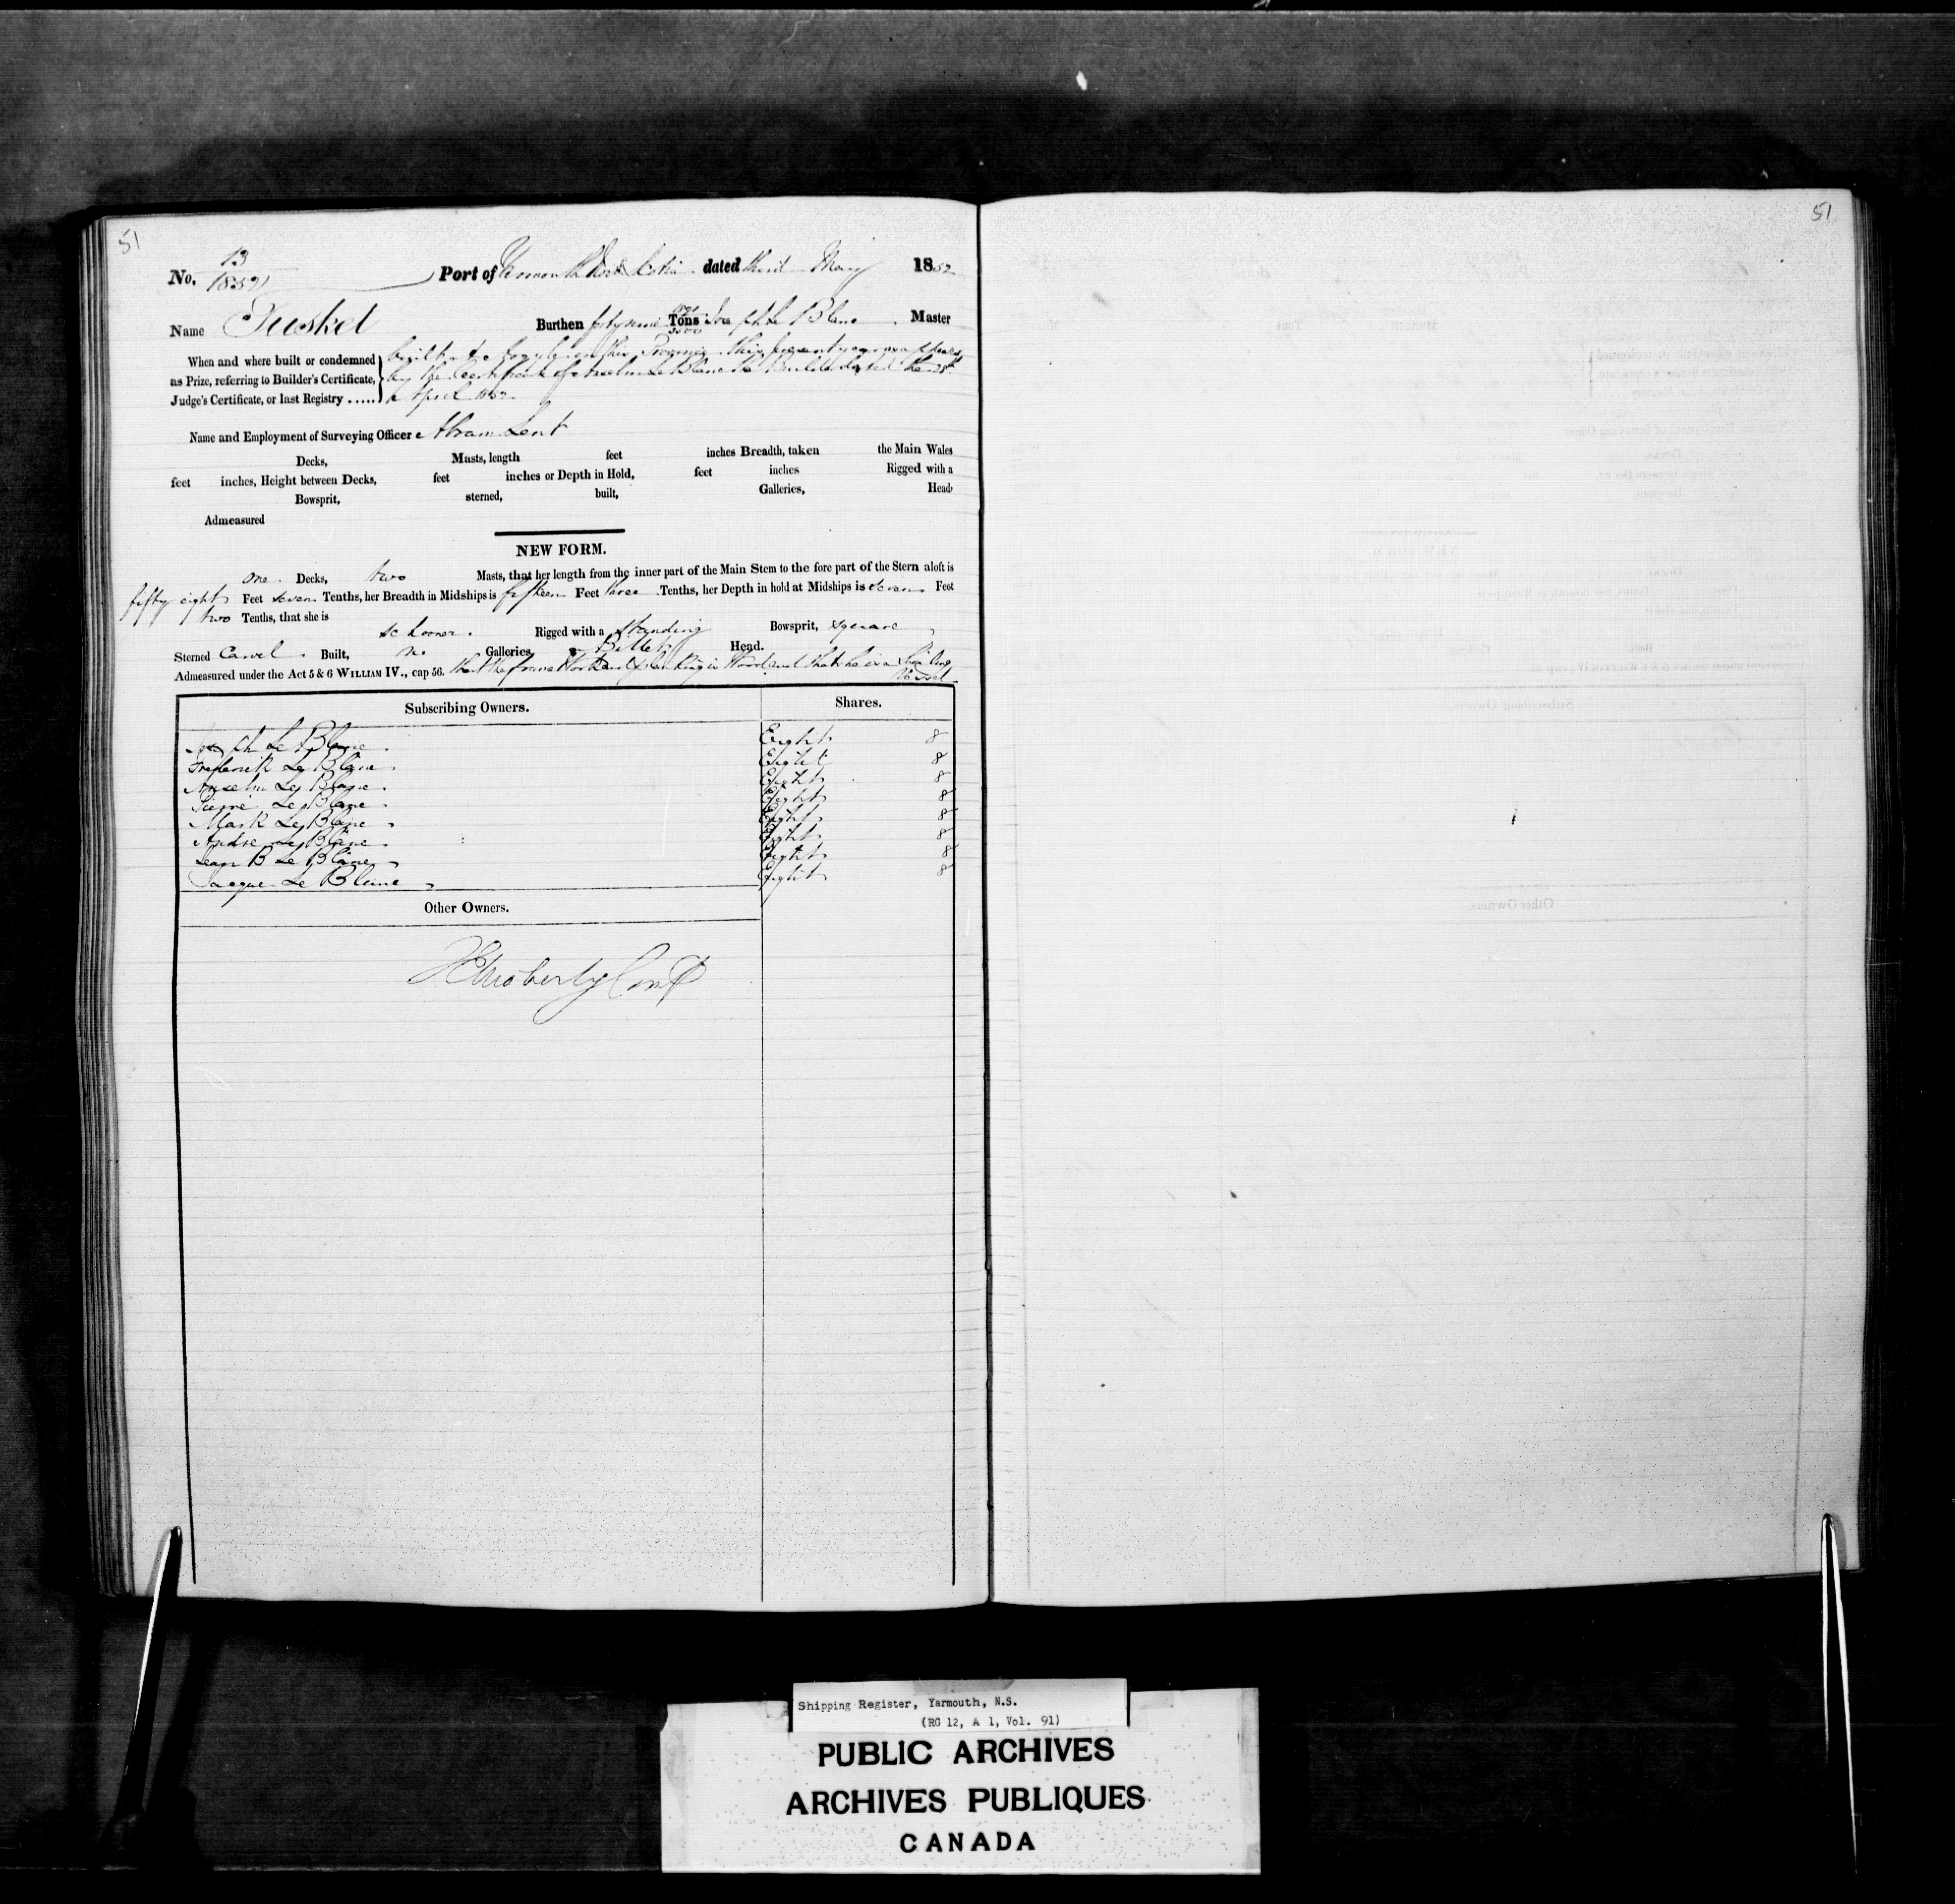 51
51
No. 13
1852
Port of Yarmouth Nova Scotia dated third May 1852
Name Tusket Burthen forty nine Tons Joseph Le Blanc Master
3500
When and where built or condemned
as Prize, referring to Builder's Certificate,
Judge's Certificate, or last Registry .....
built at Argyle in this Province this present year as appears
by the Certificate of Anselm Le Blanc the Builder dated the
April 1852
Name and Employment of Surveying Officer Abram Lent
Decks, Masts, length feet inches Breadth, taken the Main Wales
feet inches, Height between Decks, feet inches or Depth in Hold, feet inches Rigged with a
Bowsprit, sterned, built, Galleries, Head
Admeasured
NEW FORM.
one Decks, two Masts, that her length from the inner part of the Main Stem to the fore part of the Stern aloft is
fifty eight Feet seven Tenths, her Breadth in Midships is fifteen Feet three Tenths, her Depth in hold at Midships is seven Feet
two Tenths, that she is
schooner Rigged with a standing Bowsprit, square
Sterned Carvel Built, no Galleries Billet Head.
Admeasured under the Act 5 & 6 WILLIAM IV., cap 56. that the frame work and planking is Wood and that she is a Sailing
Vessel
Subscribing Owners. Shares.
Joseph Le Blanc Eight 8
Frederick Le Blanc Eight 8
Anselm Le Blanc Eight 8
Pierre Le Blanc Eight 8
Mark Le Blanc Eight 8
Andre Le Blanc Eight 8
Jean B Le Blanc Eight 8
Jacque Le Blanc Eight 8
Other Owners.
Moberly Compt
Shipping Register, Yarmouth, N.S.
(RG 12, A 1, Vol. 91)
PUBLIC ARCHIVES
ARCHIVES PUBLIQUES
CANADA